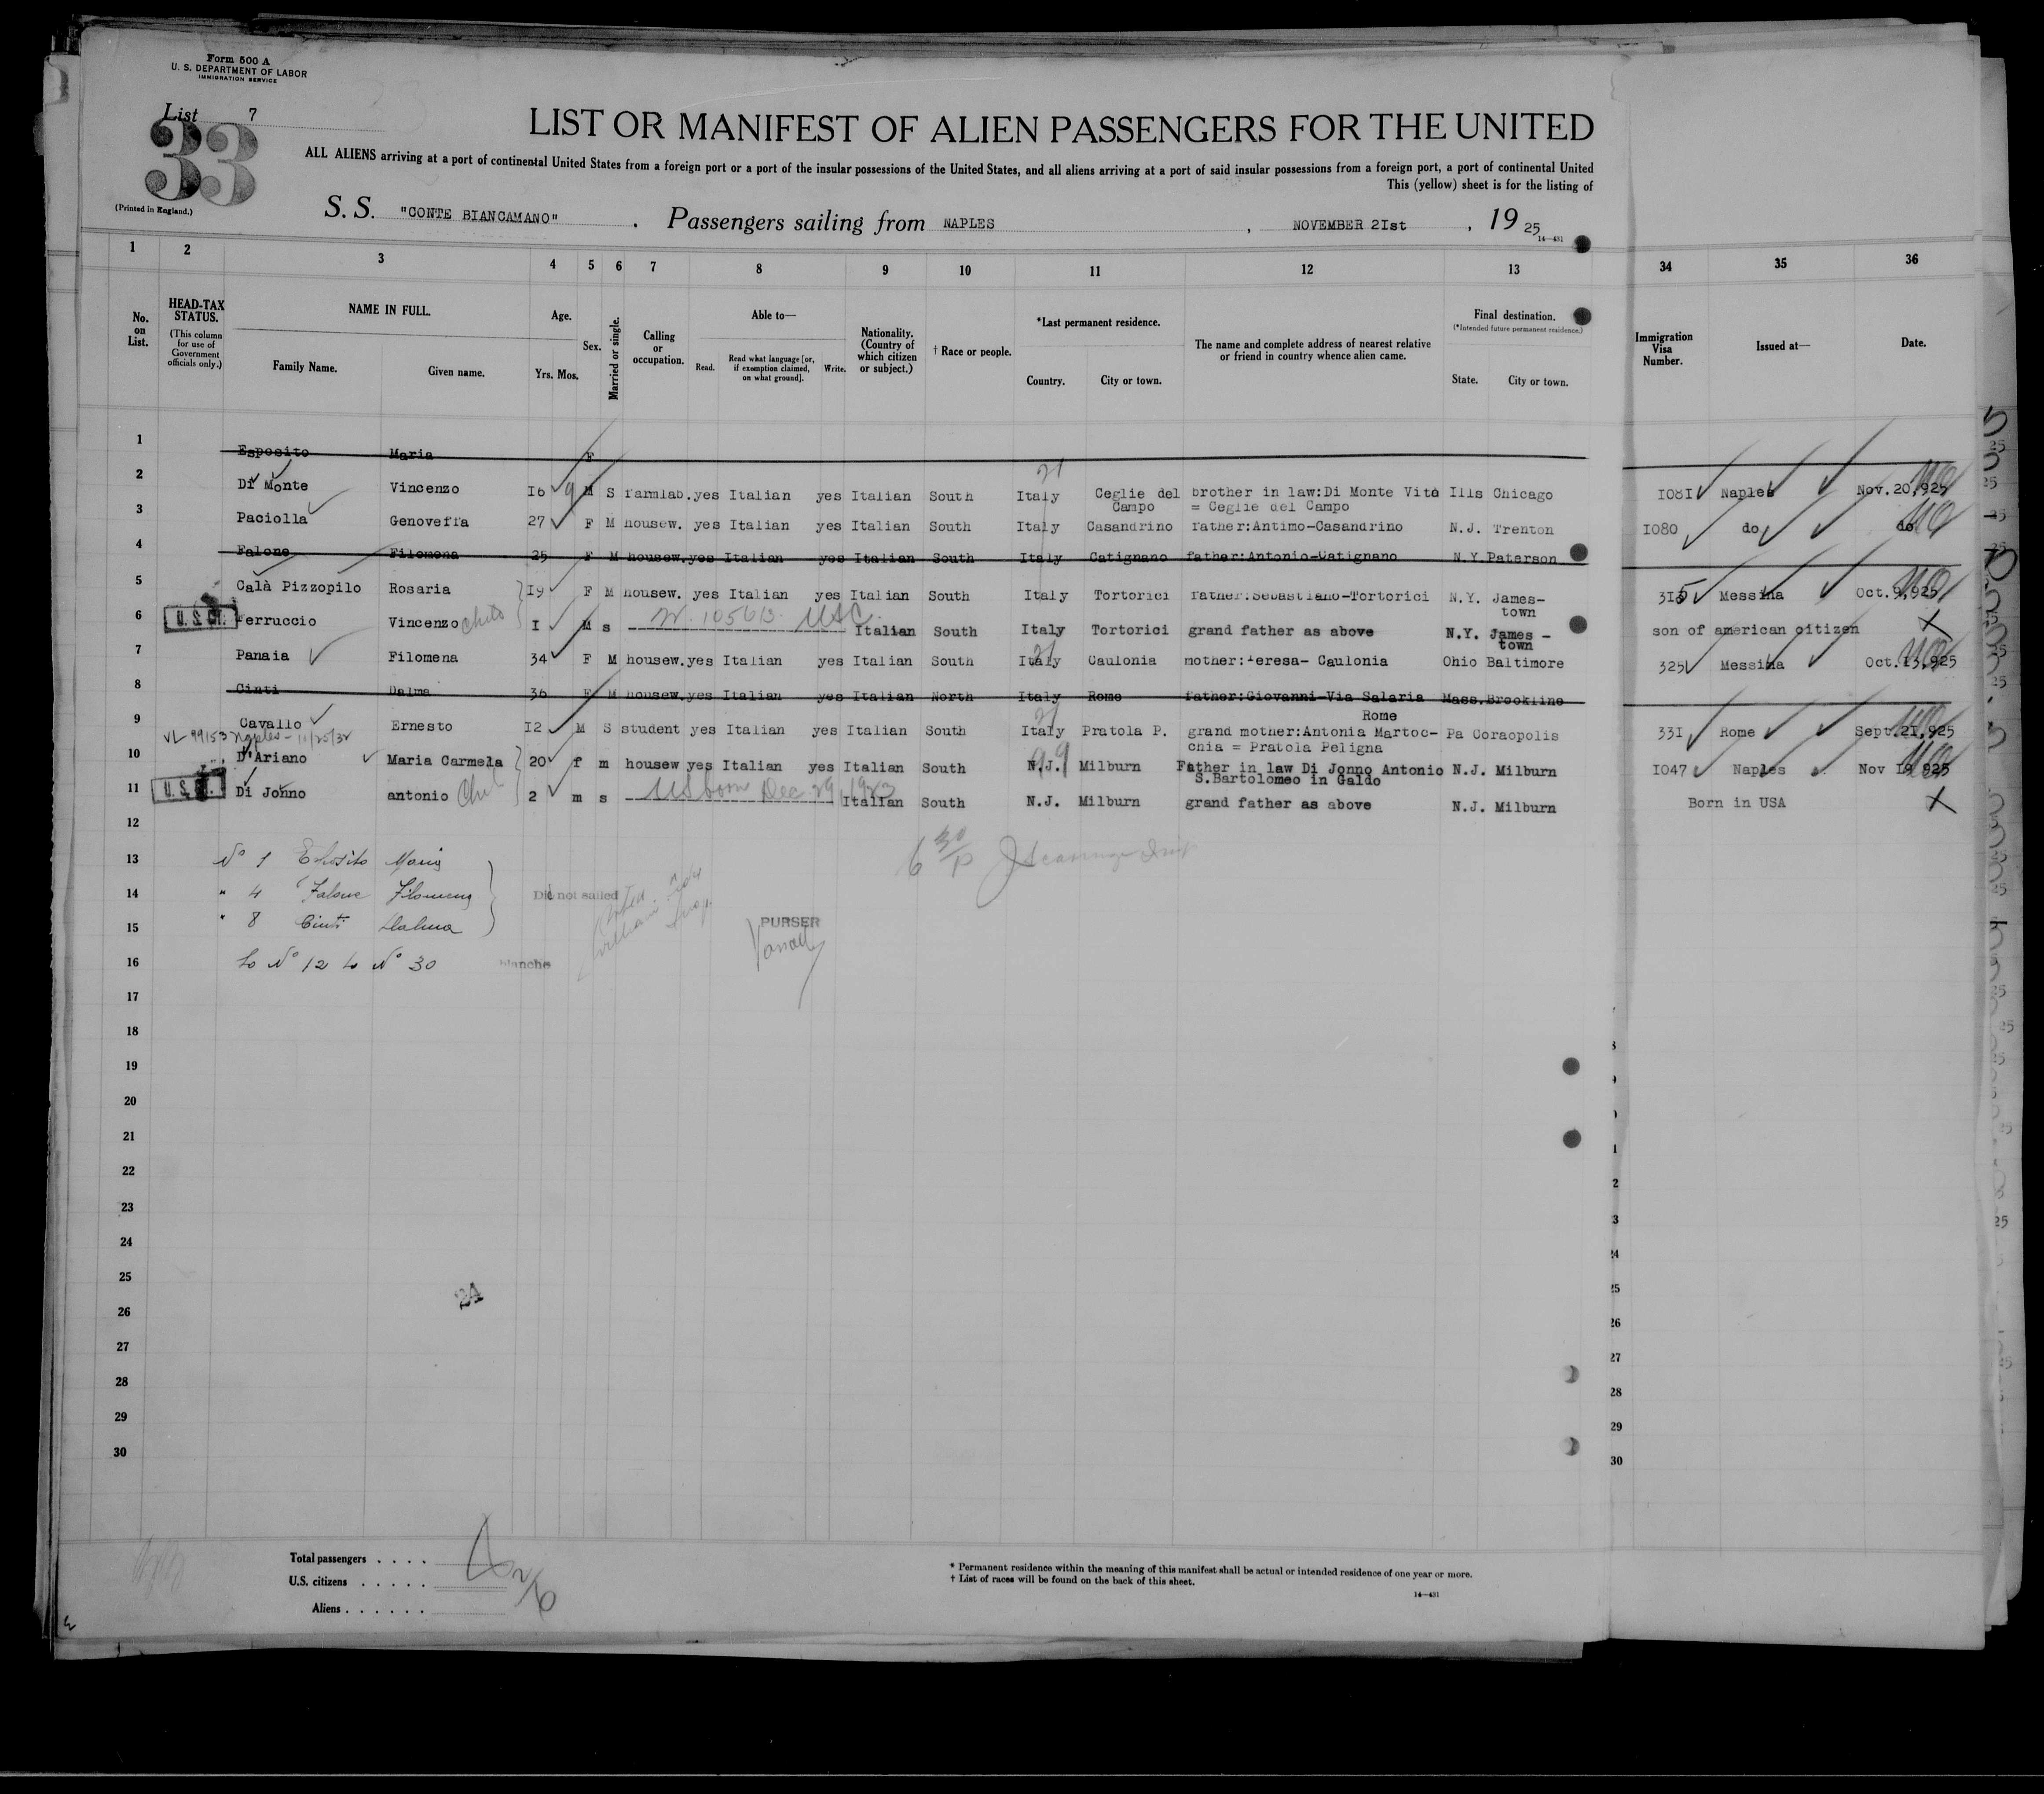 Form 500 A
U. S. DEPARTMENT OF LABOR
IMMIGRATION SERVICE
List 7
33
(Printed in England.)
LIST OR MANIFEST OF ALIEN PASSENGERS FOR THE UNITED
ALL ALIENS arriving at a port of continental United States from a foreign port or a port of the insular possessions of the United States, and all aliens arriving at a port of said insular possessions from a foreign port, a port of continental United
This (yellow) sheet is for the listing of
S. S. "CONTE BIANCAMANO" . Passengers sailing from NAPLES , NOVEMBER 2Ist , 19 25
14—431
1 2 3 4 5 6 7 8 9 10 11 12 13 34 35 36
No. on List.
HEAD-TAX STATUS.
(This column for use of Government officials only.)
NAME IN FULL.
Family Name. Given name.
Age.
Yrs. Mos.
Sex.
Married or single.
Calling or occupation.
Able to—
Read. Read what language [or, if exemption claimed, on what ground]. Write.
Nationality. (Country of which citizen or subject.)
† Race or people.
*Last permanent residence.
Country. City or town.
The name and complete address of nearest relative or friend in country whence alien came.
Final destination.
(*Intended future permanent residence.)
State. City or town.
Immigration Visa Number.
Issued at—
Date.
1 Esposito Maria F
2 Di Monte Vincenzo I6 9 M S farmlab. yes Italian yes Italian South Italy Ceglie del Campo brother in law:Di Monte Vito = Ceglie del Campo Ills Chicago I08I Naples Nov.20,925
3 Paciolla Genoveffa 27 F M housew. yes Italian yes Italian South Italy Casandrino father:Antimo-Casandrino N.J. Trenton I080 do do
4 Falone Filomena 25 F M housew. yes Italian yes Italian South Italy Catignano father:Antonio-Catignano N.Y. Paterson
5 Calà Pizzopilo Rosaria I9 F M housew. yes Italian yes Italian South Italy Tortorici father:Sebastiano-Tortorici N.Y. James-town 315 Messina Oct.9,925
6 Ferruccio Vincenzo I M s USC Italian South Italy Tortorici grand father as above N.Y. James - town son of american citizen X
7 Panaia Filomena 34 F M housew. yes Italian yes Italian South Italy Caulonia mother:Teresa- Caulonia Ohio Baltimore 325 Messina Oct.I3,925
8 Cinti Dalma 36 F M housew. yes Italian yes Italian North Italy Rome father:Giovanni-Via Salaria Rome Mass. Brookline
9 Cavallo Ernesto I2 M S student yes Italian yes Italian South Italy Pratola P. grand mother:Antonia Martoc-chia = Pratola Peligna Pa Coraopolis 33I Rome Sept.2I,925
VL 99153 Naples - 10/25/32
10 D'Ariano Maria Carmela 20 f m housew yes Italian yes Italian South N.J. Milburn Father in law Di Jonno Antonio S.Bartolomeo in Galdo N.J. Milburn I047 Naples Nov I9 925
11 Di Jonno antonio 2 m s US born Dec 29, 1923 Italian South N.J. Milburn grand father as above N.J. Milburn Born in USA X
12
13 No 1 Esposito Maria
14 " 4 Falone Filomena Did not sailed
15 " 8 Cinti Dalma
PURSER
16 to No 12 to No 30 blanche
6 30/P
17
18
19
20
21
22
23
24
25
26
27
28
29
30
24
Total passengers . . . .
U.S. citizens . . . . .
Aliens . . . . . .
* Permanent residence within the meaning of this manifest shall be actual or intended residence of one year or more.
† List of races will be found on the back of this sheet.
14—431